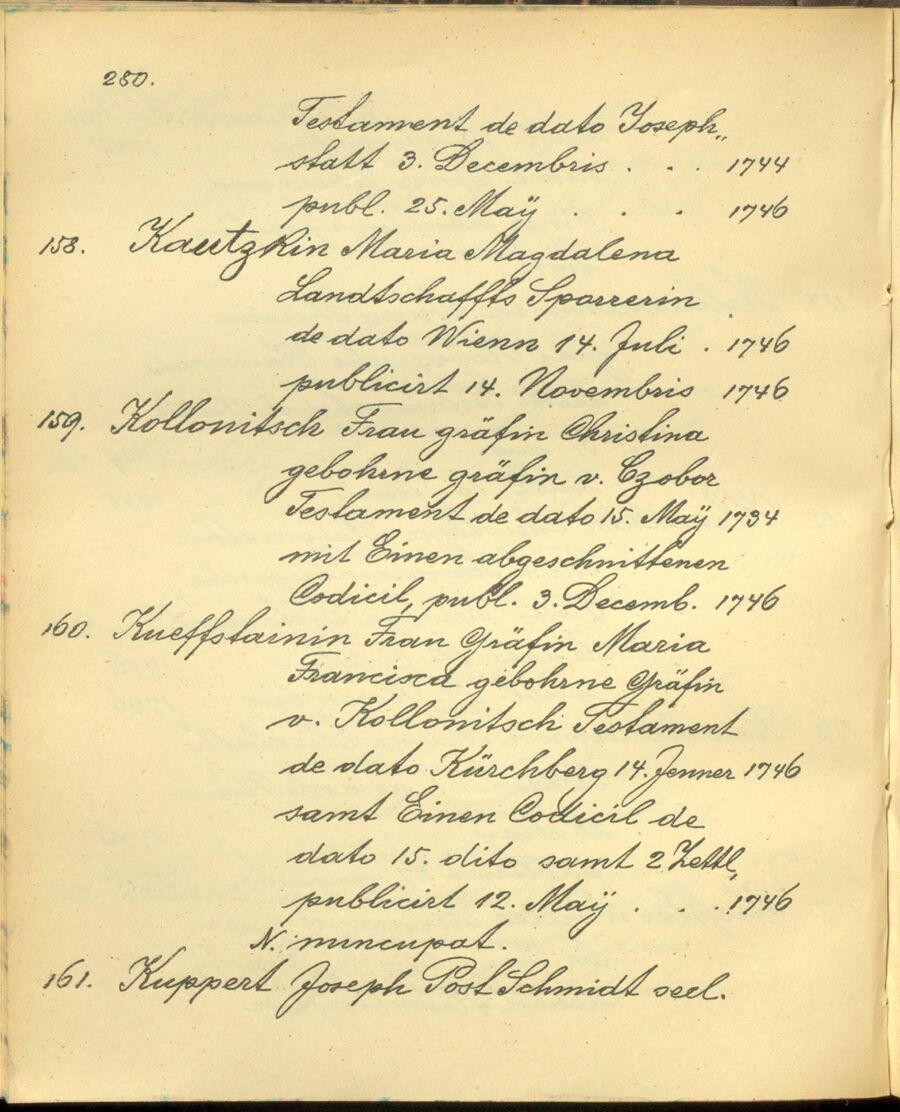 280.
Testament de dato Joseph„
statt 3. Decembris . . . 1744
publ. 25. Maÿ . . . 1746
158. Kautzkin Maria Magdalena
Landtschaffts Sporrerin
de dato Wienn 14. Juli . 1746
publicirt 14. Novembris 1746
159. Kollonitsch Frau gräfin Christina
gebohrne gräfin v. Czobor
Testament de dato 15. Maÿ 1734
mit Einen abgeschnittenen
Codicil, publ. 3. Decemb. 1746
160. Kueffstainin Frau Gräfin Maria
Francisca gebohrne Gräfin
v. Kollonitsch Testament
de dato Kürchberg 14. Jenner 1746
samt Einen Codicil de
dato 15. dito samt 2 Zettl,
publicirt 12. Maÿ . . . 1746
N. nuncupat.
161. Kuppert Joseph Post Schmidt seel.